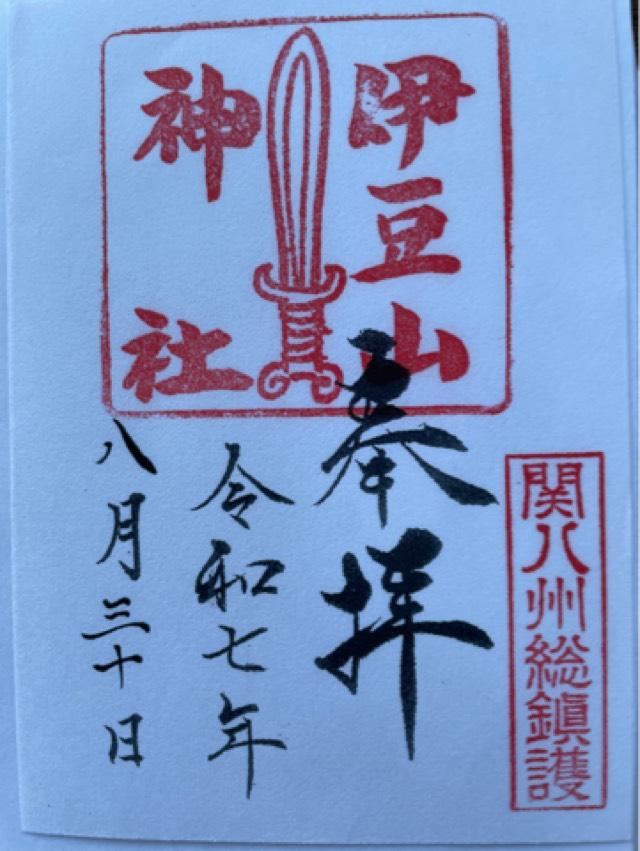 関八州総鎮護
伊豆山
神社
奉拝
令和七年
八月三十日